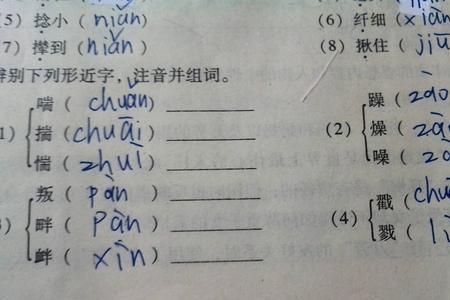 5) 捻小 ( niǎn ) (6) 纤细 ( xiàn
7) 撵到 ( niǎn ) (8) 揪住 ( jiū
辨别下列形近字，注音并组词。
喘 ( chuǎn ) 躁 ( zào
1) 揣 ( chuāi ) (2) 燥 ( zà
惴 ( zhuì ) 噪 ( zà
叛 ( pàn )
3) 畔 ( pàn ) 戳 ( chu
衅 ( xìn ) (4) 戮 ( l